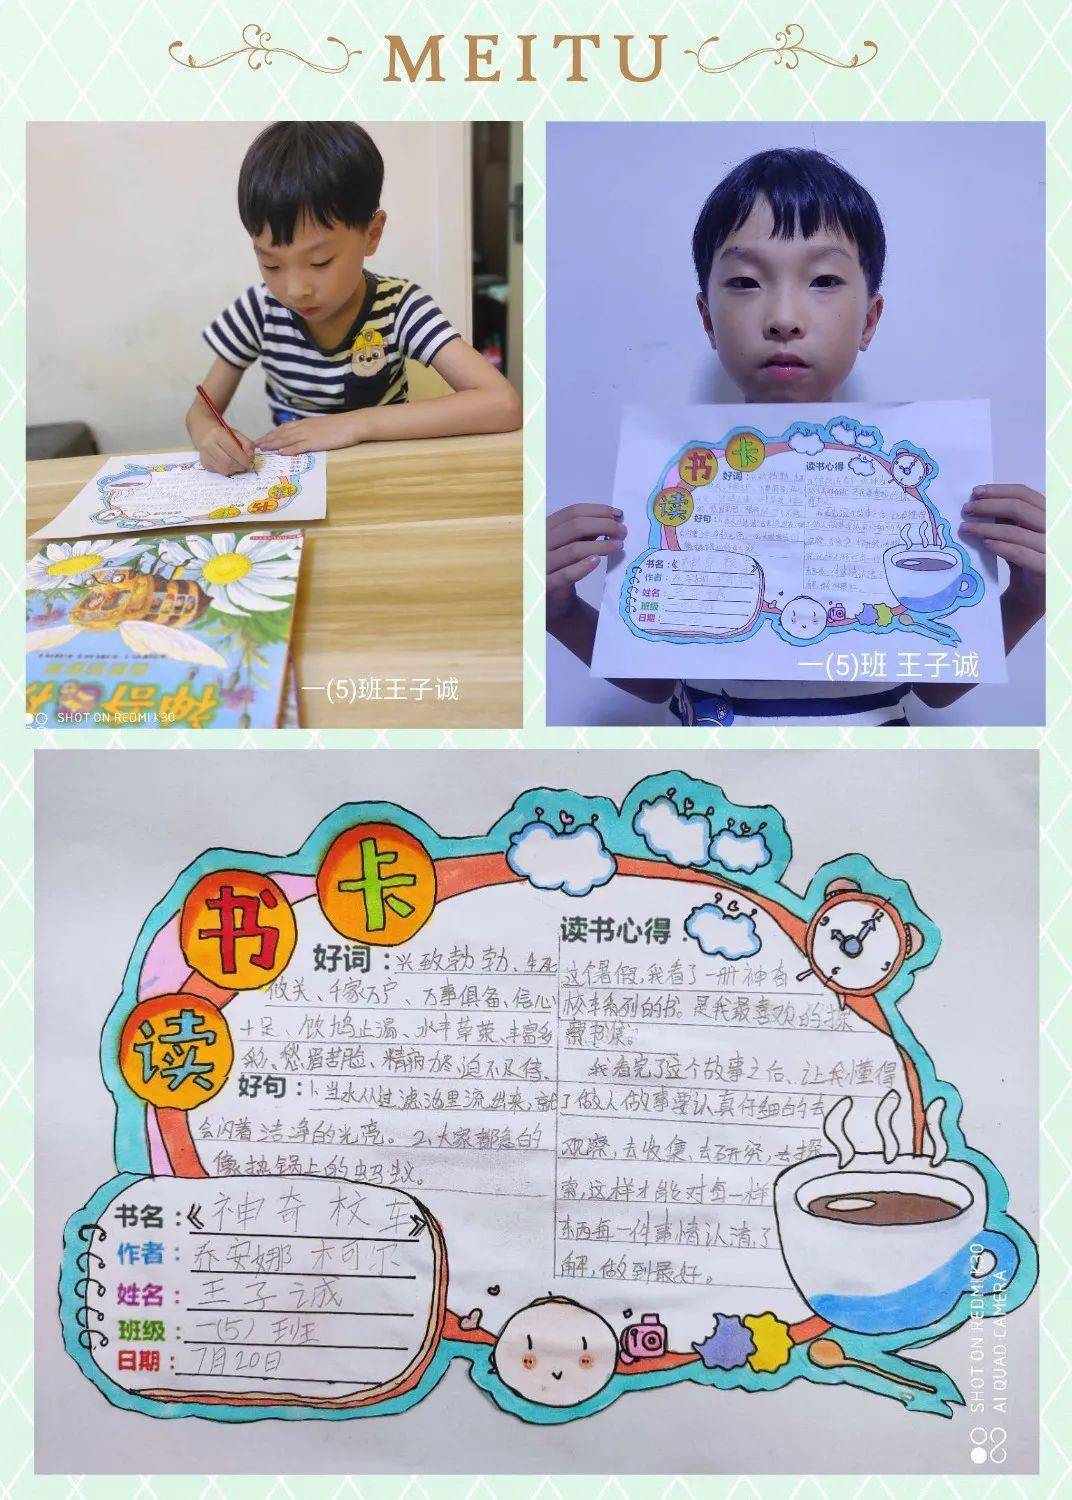 MEITU
神奇校
一(5)班王子诚
SHOT ON REDMI K30
读书卡
好词：
读书心得
好句：
书名：《神奇校
作者：
姓名：
班级：
日期：
一(5)班 王子诚
读书卡
好词：兴致勃勃、生死
攸关、千家万户、万事俱备、信心
十足、饮鸩止渴、水丰草茂、丰富多
彩、愁眉苦脸、精疲力尽、迫不及待、
好句：1、当水从过滤池里流出来，就
会闪着洁净的光亮。2、大家都急的
像热锅上的蚂蚁。
读书心得：
这个暑假，我看了一册神奇
校车系列的书。是我最喜欢的探
索书集。
我看完了这个故事之后、让我懂得
了做人做事要认真仔细的去
观察，去收集、去研究，去探
索，这样才能对每一样
东西每一件事情认清、了
解，做到最好。
书名：《神奇校车》
作者：乔安娜 柯尔
姓名：王子诚
班级：一(5)班
日期：7月20日
SHOT ON REDMI K30
AI QUAD CAMERA